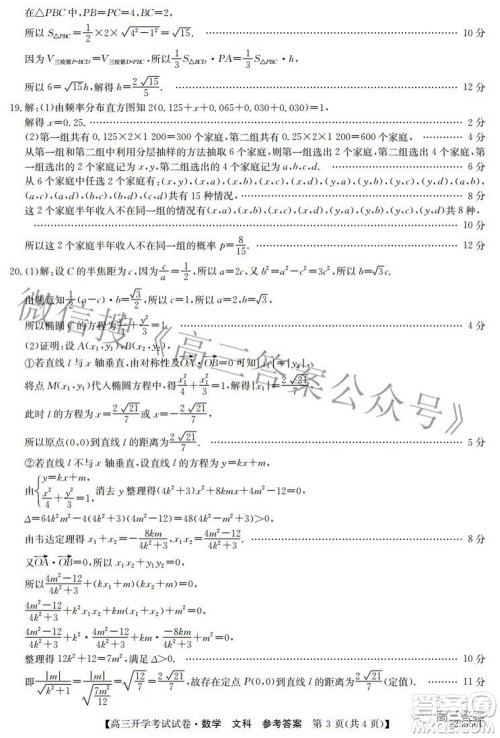 在△PBC中,PB=PC=4,BC=2,
所以 S△PBC=1/2×2×√(4²-1²)=√15. …… 10分
因为 V三棱锥P-BCD=V三棱锥D-PBC,所以1/3 S△BCD·PA=1/3 S△PBC·h,
所以 6=√15h,解得 h=2√15/5. …… 12分
19.解:(1)由频率分布直方图 2(0.125+x+0.065+0.030+0.030)=1,
解得 x=0.25. …… 2分
(2)第一组共有 0.125×2×1 200=300 个家庭,第二组共有 0.25×2×1 200=600 个家庭, …… 4分
从第一组和第二组中利用分层抽样的方法抽取 6 个家庭,则第一组选出 2 个家庭,第二组选出 4 个家庭,设第一组选出的 2 个家庭记为 x,y,第二组选出的 4 个家庭记为 a,b,c,d. …… 6分
从 6 个家庭中任选 2 个家庭有:(x,y),(x,a),(x,b),(x,c),(x,d),(y,a),(y,b),(y,c),(y,d),(a,b),
(a,c),(a,d),(b,c),(b,d),(c,d)共有 15 种情况, …… 8分
这 2 个家庭半年收入不在同一组有:(x,a),(x,b),(x,c),(x,d),(y,a),(y,b),(y,c),(y,d)共 8 种,
…… 10分
所以这 2 个家庭半年收入不在同一组的概率 p=8/15. …… 12分
20.(1)解:设 C 的半焦距为 c,因为c/a=1/2,所以 a=2c,又 b²=a²-c²=3c²,所以 b=√3c.
由题意知1/2(a-c)·b=√3/2,
所以椭圆 C 的方程为x²/4+y²/3=1. …… 4分
(2)证明:设 A(x₁,y₁),B(x₂,y₂),
①若直线 l 与 x 轴垂直,由对称性及OA·OB=0可知|x₁|=|y₁|,
将点 M(x₁,y₁)代入椭圆方程,得x₁²/4+y₁²/3=1,解得|x₁|=|y₁|=2√21/7,
此时 l 的方程为 x=2√21/7 或 x=-2√21/7,
所以原点(0,0)到直线 l 的距离为2√21/7. …… 5分
②若直线 l 不与 x 轴垂直,设直线 l 的方程为 y=kx+m,
由{y=kx+m, x²/4+y²/3=1, 消去 y 整理得(4k²+3)x²+8kmx+4m²-12=0,
Δ=64k²m²-4(4k²+3)(4m²-12)=48(4k²-m²+3)>0,
由韦达定理得 x₁+x₂=-8km/(4k²+3),x₁x₂=(4m²-12)/(4k²+3), …… 8分
又OA·OB=0,所以 x₁x₂+y₁y₂=0,
所以(4m²-12)/(4k²+3)+(kx₁+m)(kx₂+m)=0,
(4m²-12)/(4k²+3)+k²x₁x₂+km(x₁+x₂)+m²=0,
(4m²-12)/(4k²+3)+k²·(4m²-12)/(4k²+3)+km·(-8km/(4k²+3))+m²=0,
整理得 12k²+12=7m²,满足 Δ>0. …… 10分
即|m|/√(k²+1)=|m|/√(7m²/12)=2√21/7,故存在定点 P(0,0)到直线 l 的距离为定值2√21/7. …… 12分
【高三开学考试试卷·数学 文科 参考答案 第 3 页(共 4 页)】
微信搜《高三答案公众号》